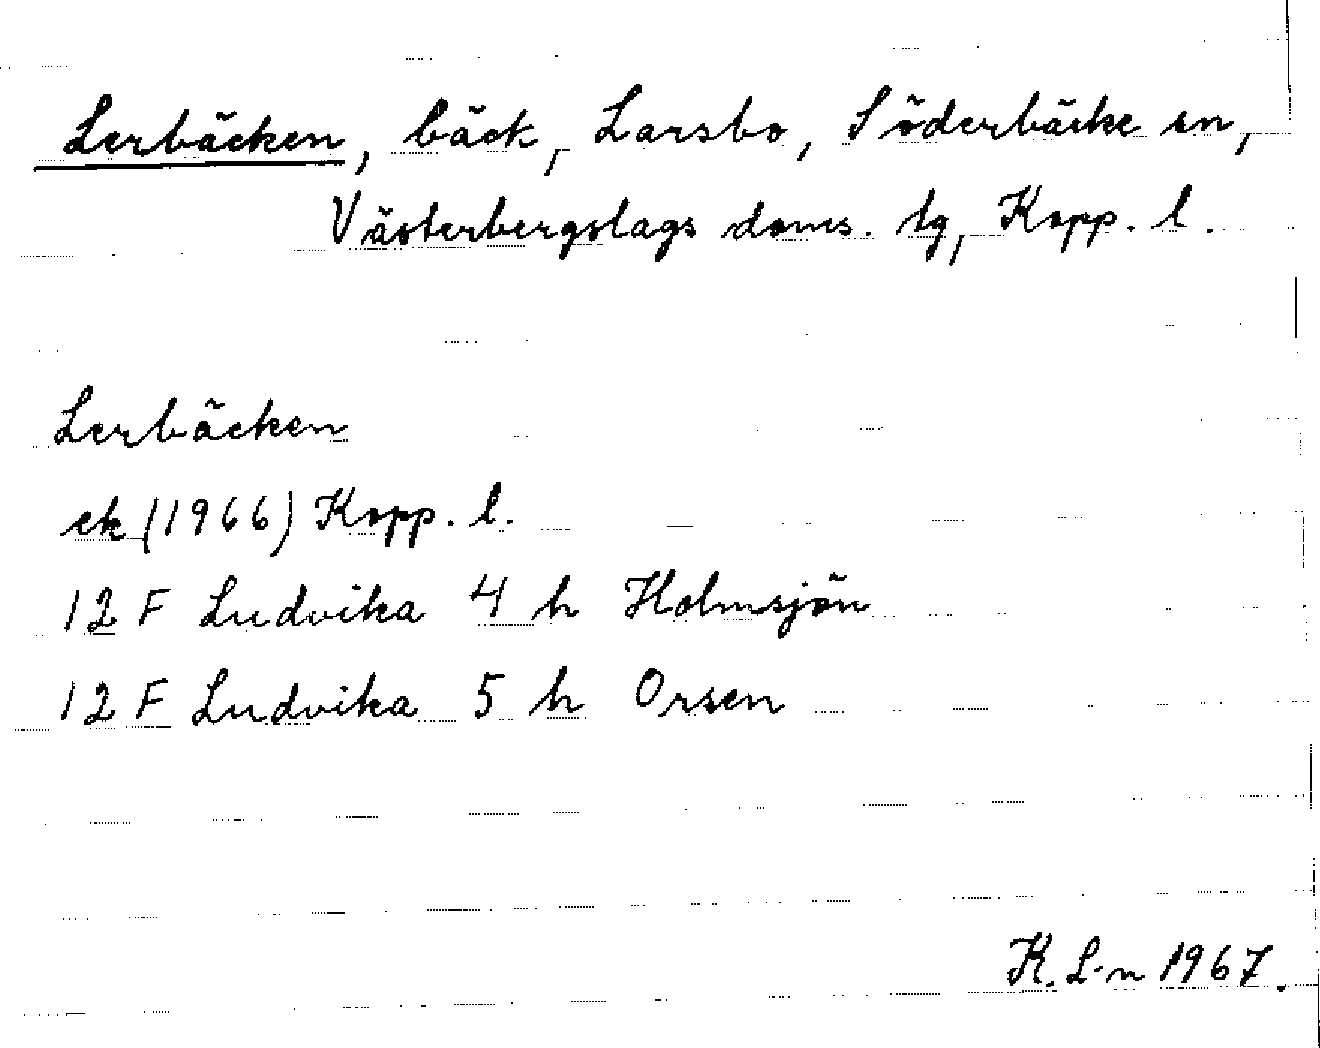 Lerbäcken, bäck, Larsbo, Söderbärke sn,
Västerbergslags doms. tg, Kopp. l.
Lerbäcken
ek (1966) Kopp. l.
12 F Ludvika 4 h Holmsjön
12 F Ludvika 5 h Orsen
K. L-n 1967.